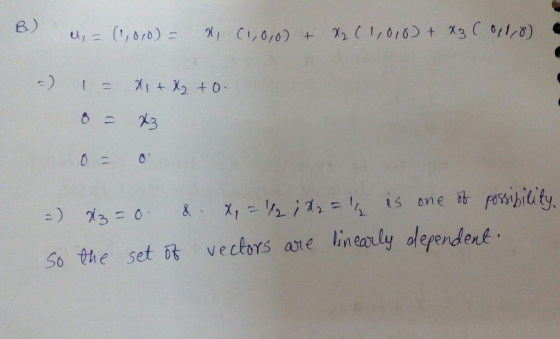 B) u₁ = (1,0,0) = x₁ (1,0,0) + x₂ (1,0,0) + x₃ (0,1,0)
=) 1 = x₁ + x₂ + 0.
0 = x₃
0 = 0
=) x₃ = 0. & x₁ = 1/2 ; x₂ = 1/2 is one of possibility.
So the set of vectors are linearly dependent.